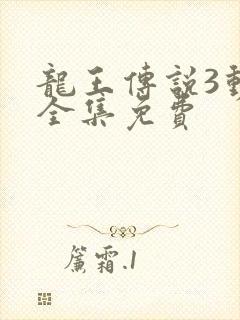 龍王傳說3動
全集免費
簾霜.1